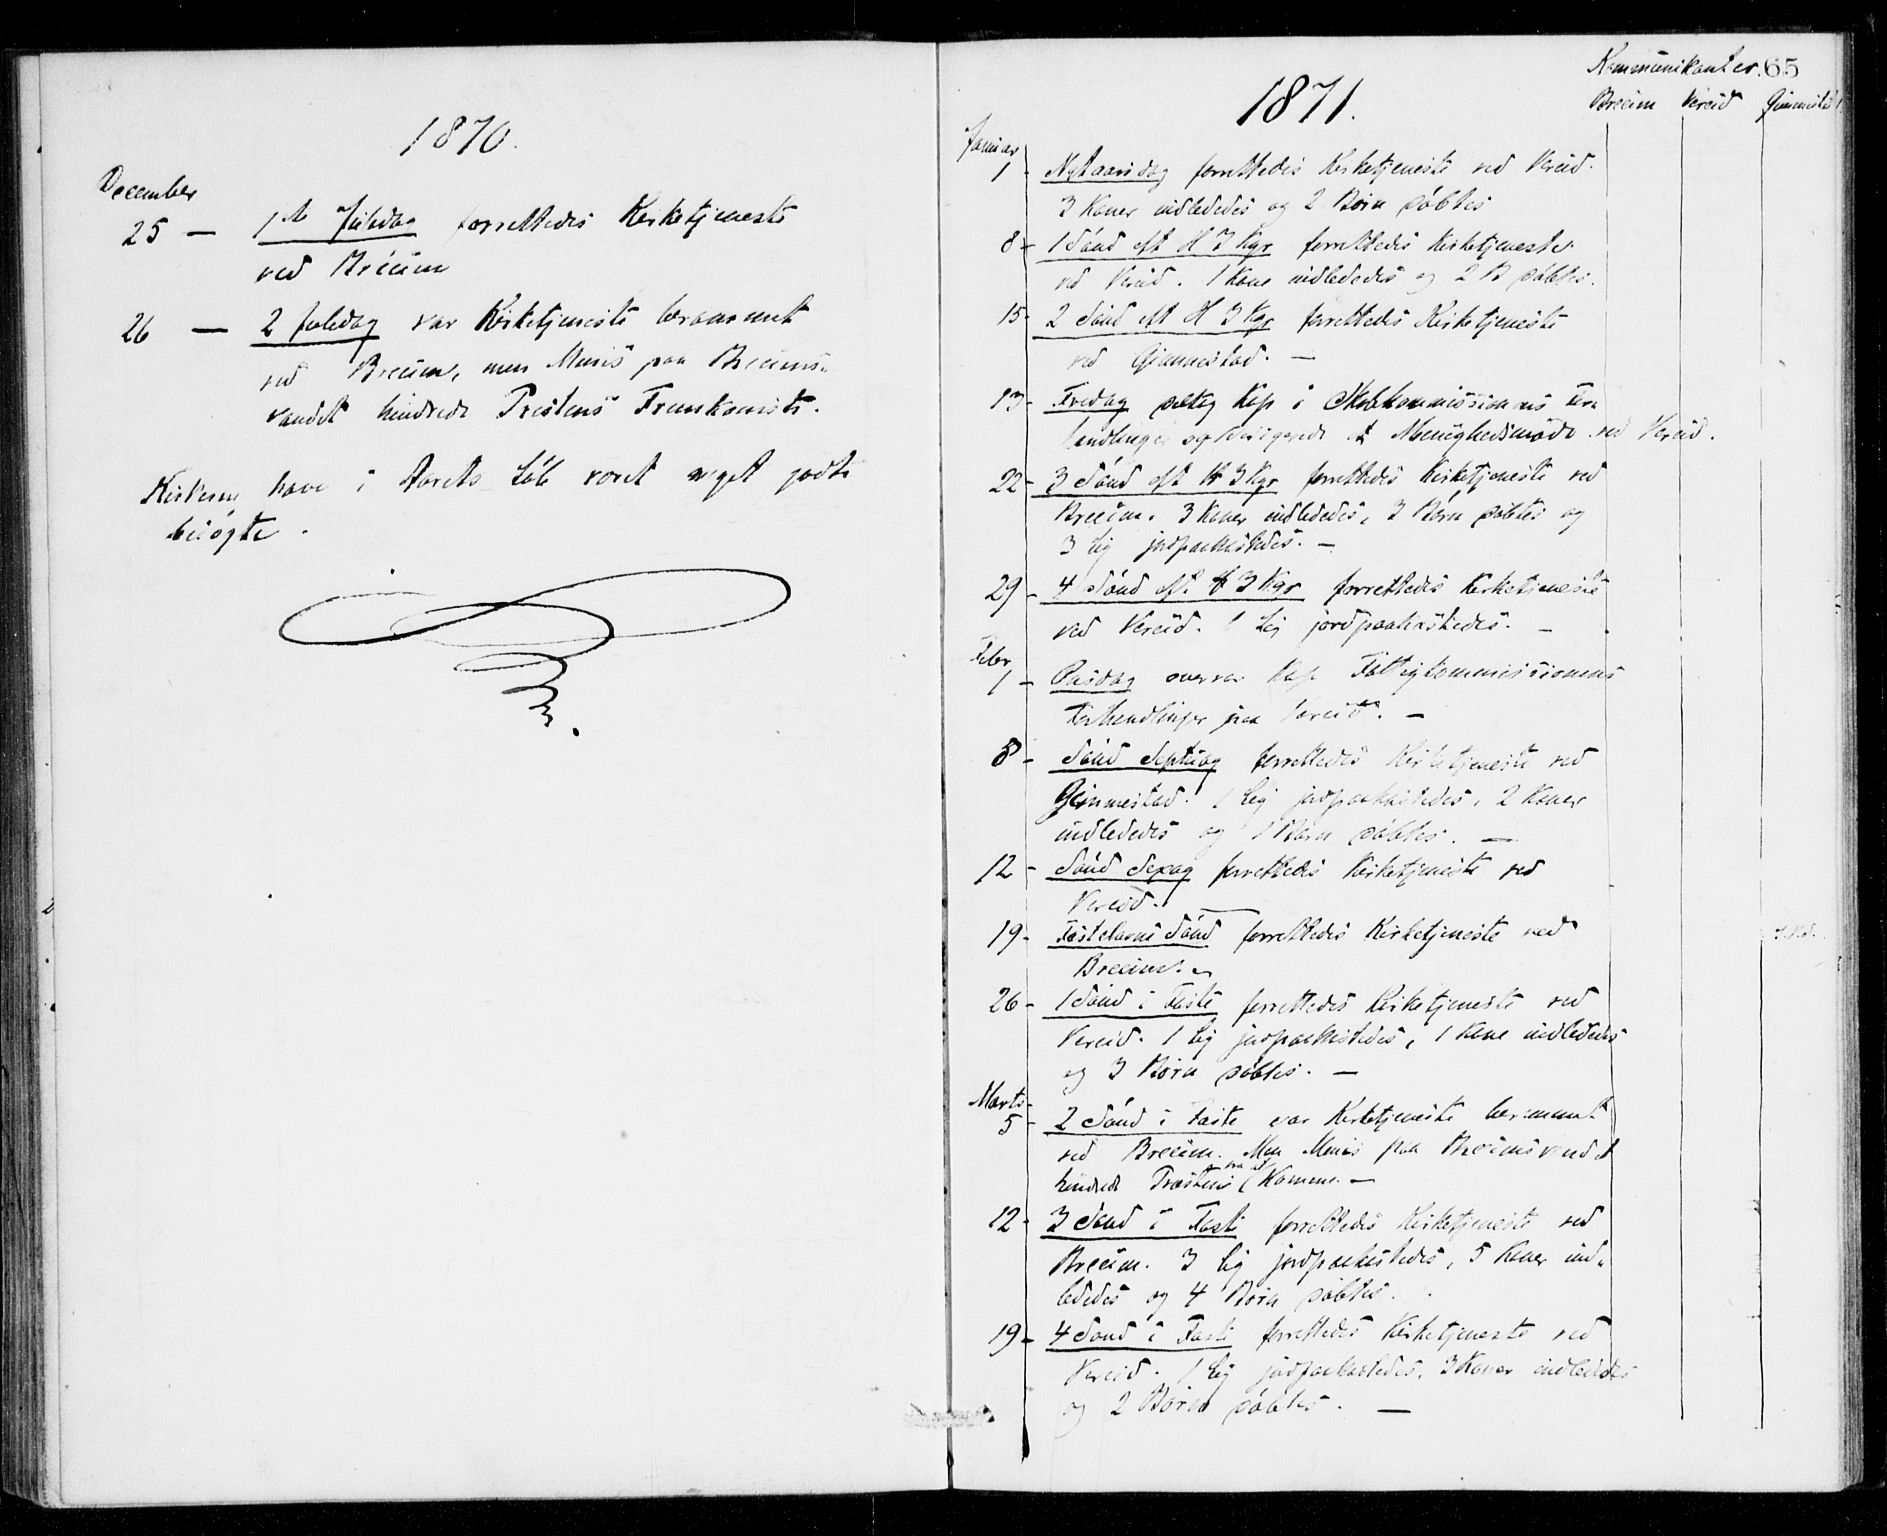 1870.
December
25 — 1ste Juledag forrettedes Kirketjeneste
ved Breim
26 — 2 Juledag var Kirketjeneste berammet
ved Breim, men Menis paa Breims-
vandet hindrede Prestens Fremkomst.
Kirkerne have i Aarets Løb været meget godt
besøgte.
Kommunikanter. 65
1871.
Breim Vereid Gimmestad
Januar
1 - Nytaarsdag forrettedes Kirketjeneste ved Vereid.
3 Koner indlededes og 2 Børn døbtes
8 - 1 Sønd eft H 3 Kgr forrettedes Kirketjeneste
ved Vereid. 1 Kone indlededes og 2 B døbtes.
15 - 2 Sønd eft H 3 Kgr forrettedes Kirketjeneste
ved Gimmestad. —
13 - Fredag deltog Kap i Skolekommissionens For
handlinger og Menighedsmøde ved Vereid.
22 - 3 Sønd eft H 3 Kgr forrettedes Kirketjeneste ved
Breim. 3 Koner indlededes, 3 Børn døbtes og
3 Lig jordpaakastedes. —
29 - 4 Sønd eft. H 3 Kgr forrettedes Kirketjeneste
ved Vereid. 1 Lig jordpaakastedes. —
Febr
1 - Onsdag overvar Kap Fattigkommissionens
Forhandlinger paa Vereid. —
8 - Sønd Septuag forrettedes Kirketjeneste ved
Gimmestad. 1 Lig jordpaakastedes, 2 Koner
indlededes og 1 Børn døbtes. —
12 - Sønd Sexag forrettedes Kirketjeneste ved
Vereid. —
19 - Fastelavns Sønd forrettedes Kirketjeneste ved
Breim. -
26 - 1 Sønd i Faste forrettedes Kirketjeneste ved
Vereid. 1 Lig jordpaakastedes, 1 Kone indlededes
og 3 Børn døbtes. —
Marts
5 - 2 Sønd i Faste var Kirketjeneste berammet
ved Breim. Men Menis paa Breimsvandet
hindrede Præsten fra at Komme. —
12 - 3 Sønd i Faste forrettedes Kirketjeneste ved
Breim. 3 Lig jordpaakastedes, 5 Koner ind-
lededes og 4 Børn døbtes.
19 - 4 Sønd i Faste forrettedes Kirketjeneste ved
Vereid. 1 Lig jordpaakastedes, 3 Koner indlededes
og 2 Børn døbtes. —